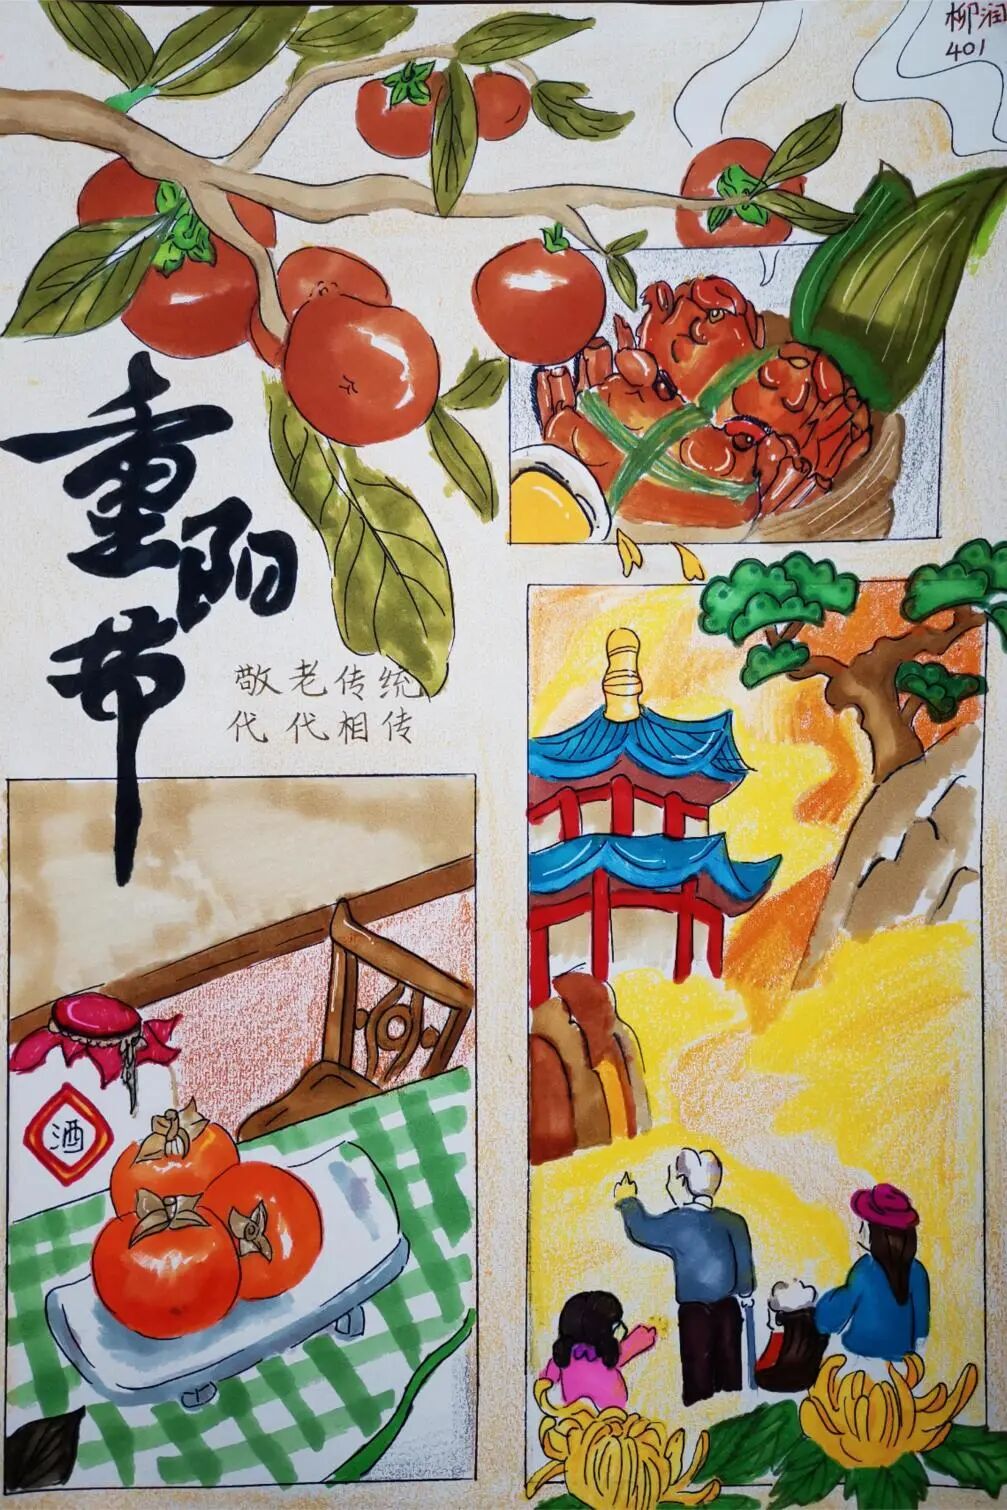 柳润
401
重阳节
敬老传统
代代相传
酒